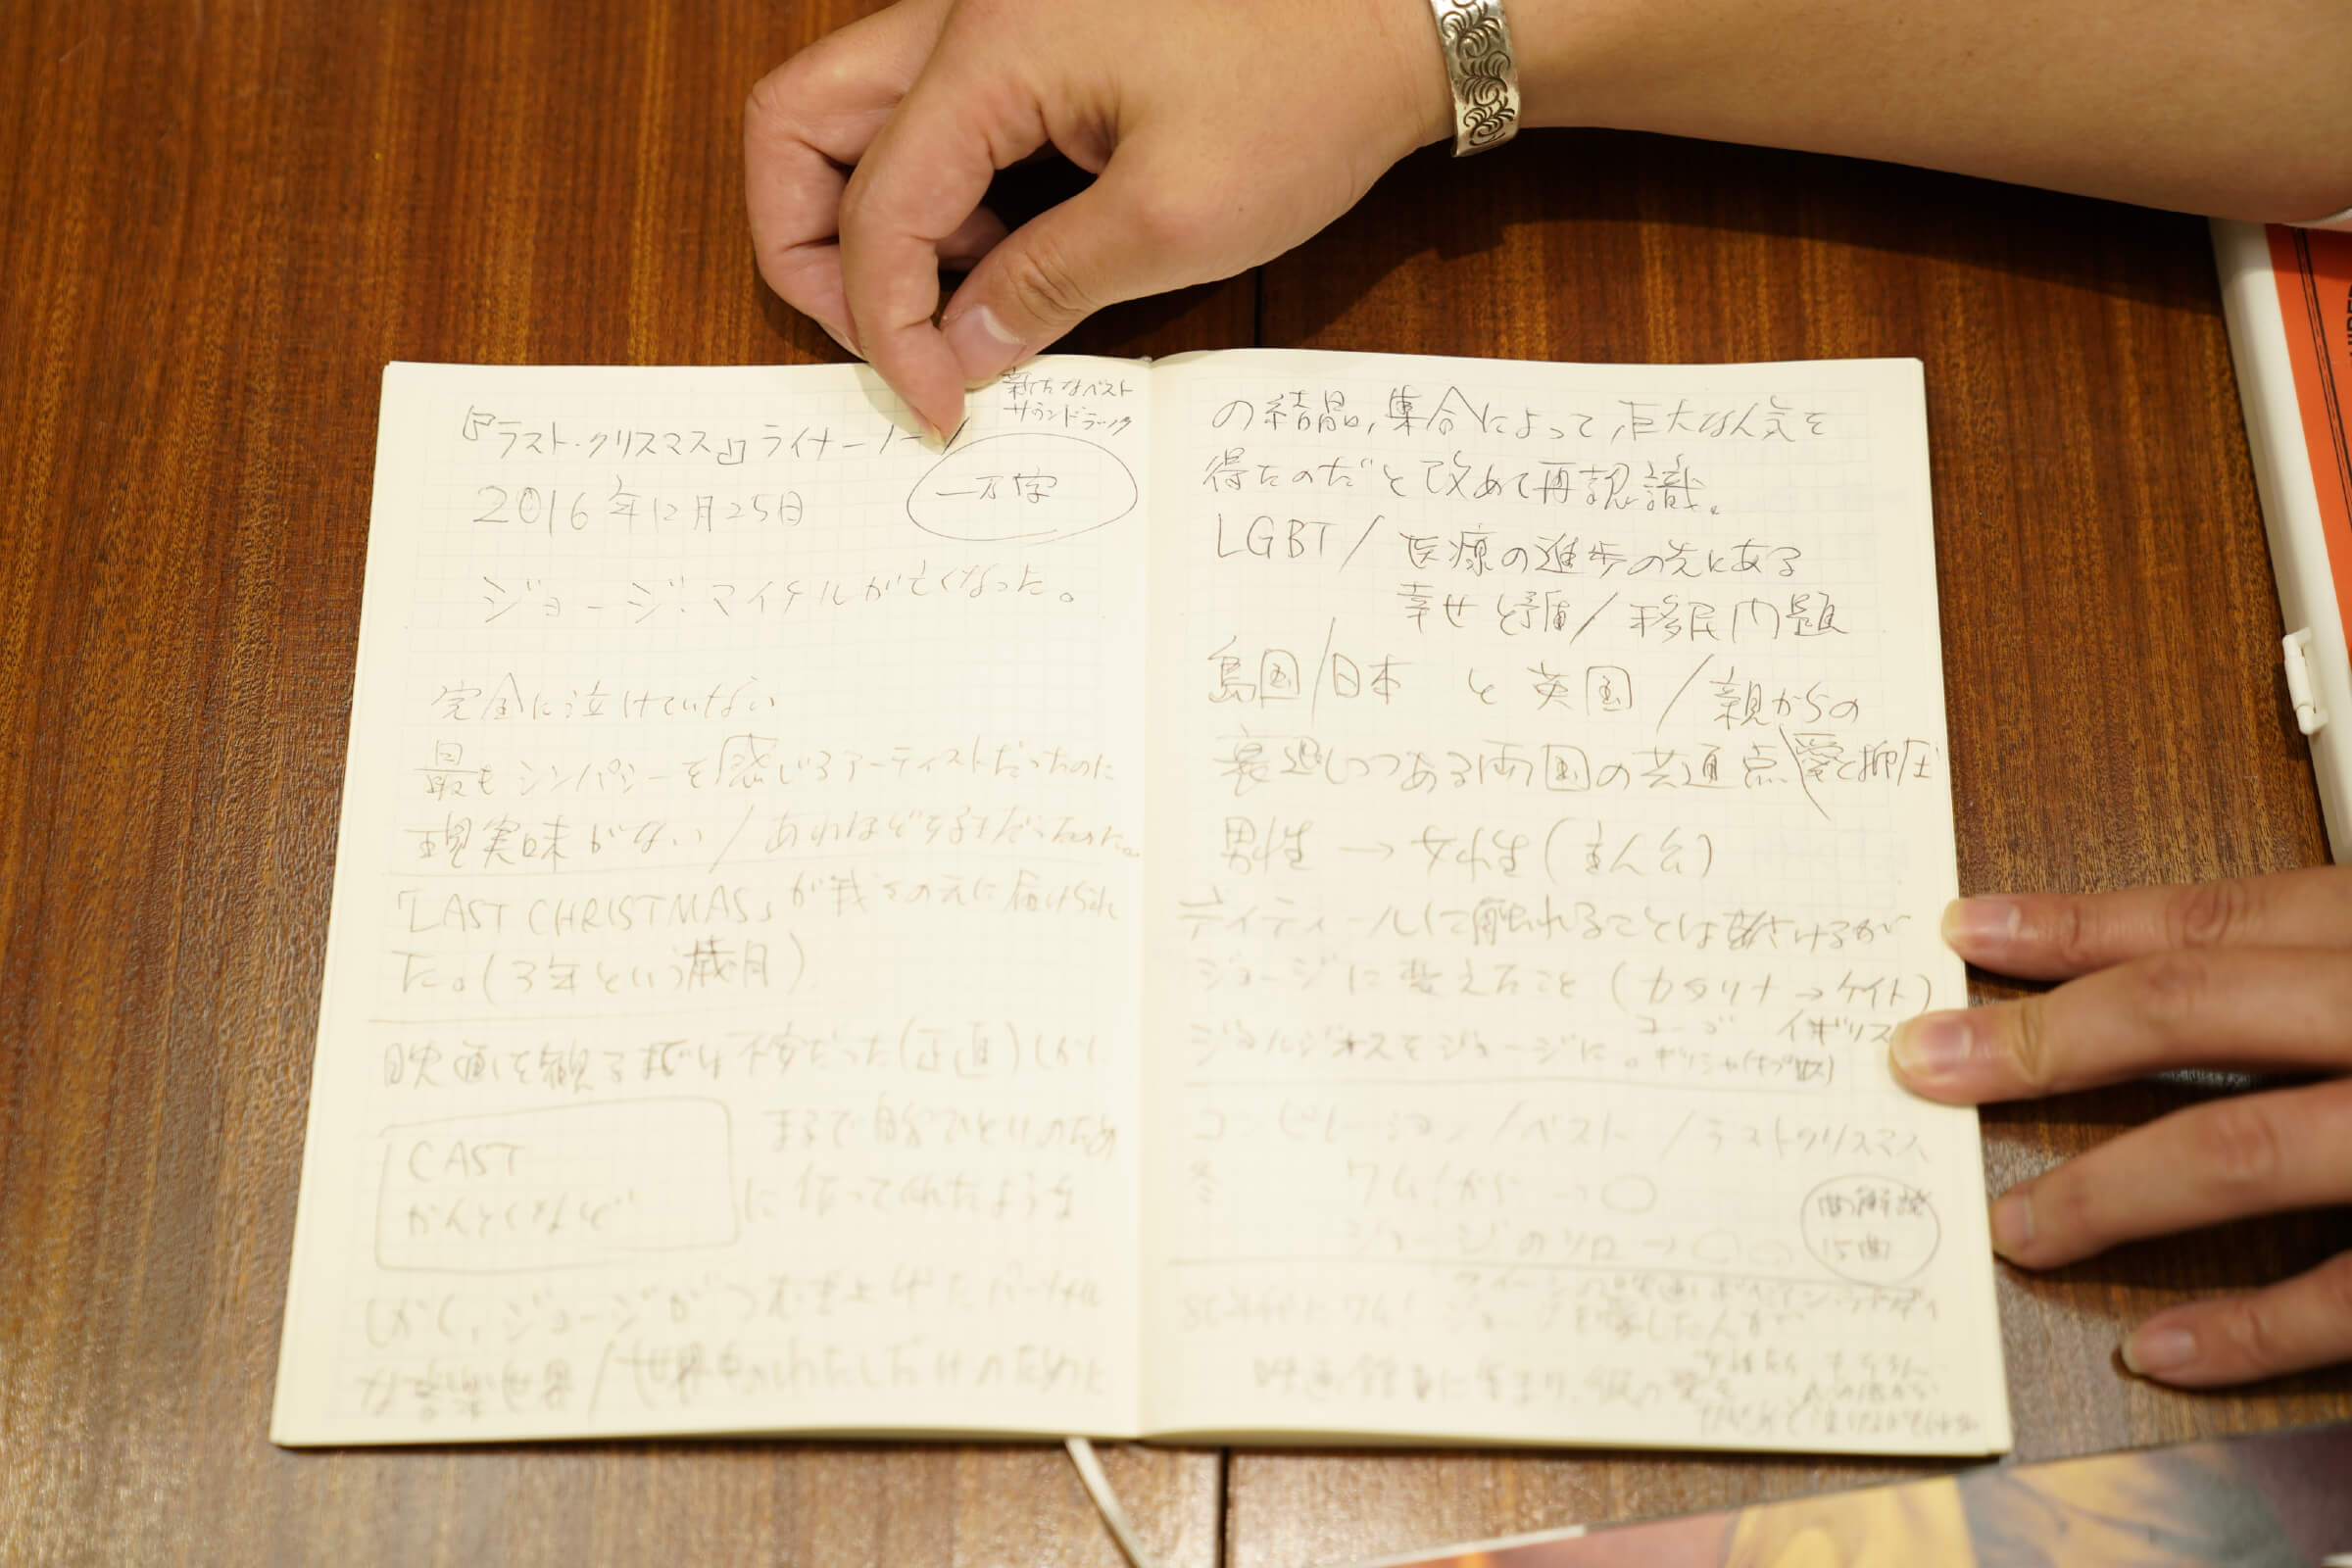 新たなベスト
サウンドトラック
『ラスト・クリスマス』ライナーノーツ
一万字
2016年12月25日
ジョージ・マイケルが亡くなった。
完全に泣けていない
最もシンパシーを感じるアーティストだったのに
現実味がない/あれほど好きだったのに。
「LAST CHRISTMAS」が我々の元に届けられ
た。(3年という歳月)
映画を観るまでは不安だった(正直)しかし
まるで自分ひとりのため
に作ってくれたような
CAST
かんとくなど
しかし、ジョージがつむぎ上げたパーソナル
な音楽世界/世界中のわたしだけのためと
の結晶,集合によって,巨大な人気を
得たのだと改めて再認識。
LGBT/医療の進歩の先にある
幸せと矛盾/移民問題
島国/日本 と 英国 /親からの
愛と抑圧
衰退しつつある両国の共通点
男性→女性(主人公)
ディティールに触れることは避けるが
ジョージに変えたこと(カタリナ→ケイト)
ユーゴ イギリス
ジョルジオスをジョージに。ギリシャ(キプロス)
コンピレーション/ベスト/ラストクリスマス
冬 ワム!が →〇
ジョージのソロ→〇〇
曲解説
15曲
80年代 ワム! ジョージを愛した人が